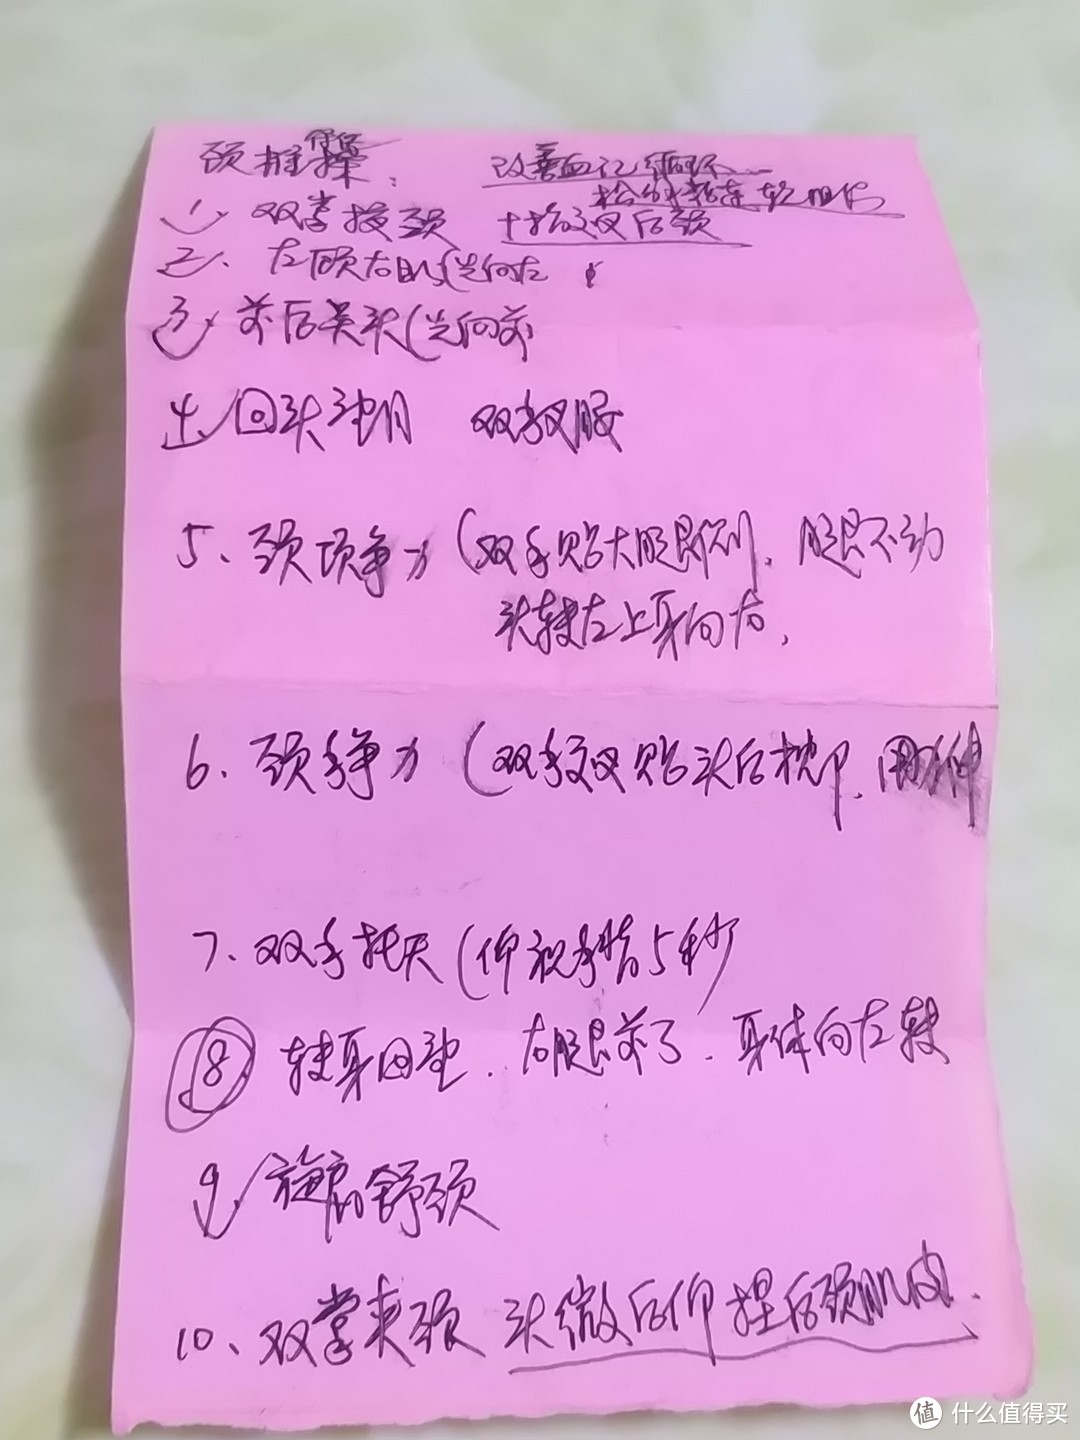 颈椎保健操. 改善血记循环
松解粘连
1、双掌擦颈 十指交叉后颈
2、左顾右盼(先向左
3、前后点头(先向前
4、回头望月 双手叉腰
5、颈项争力(双手贴大腿两侧.腿不动
头转左上身向右,
6、颈争力(双手交叉贴头后枕
7、双手托天(仰视手指5秒
⑧ 转身回望.右腿前了.身体向左转
9、旋肩舒颈
10、双掌夹颈 头微后仰 捏后颈肌肉.
值 什么值得买